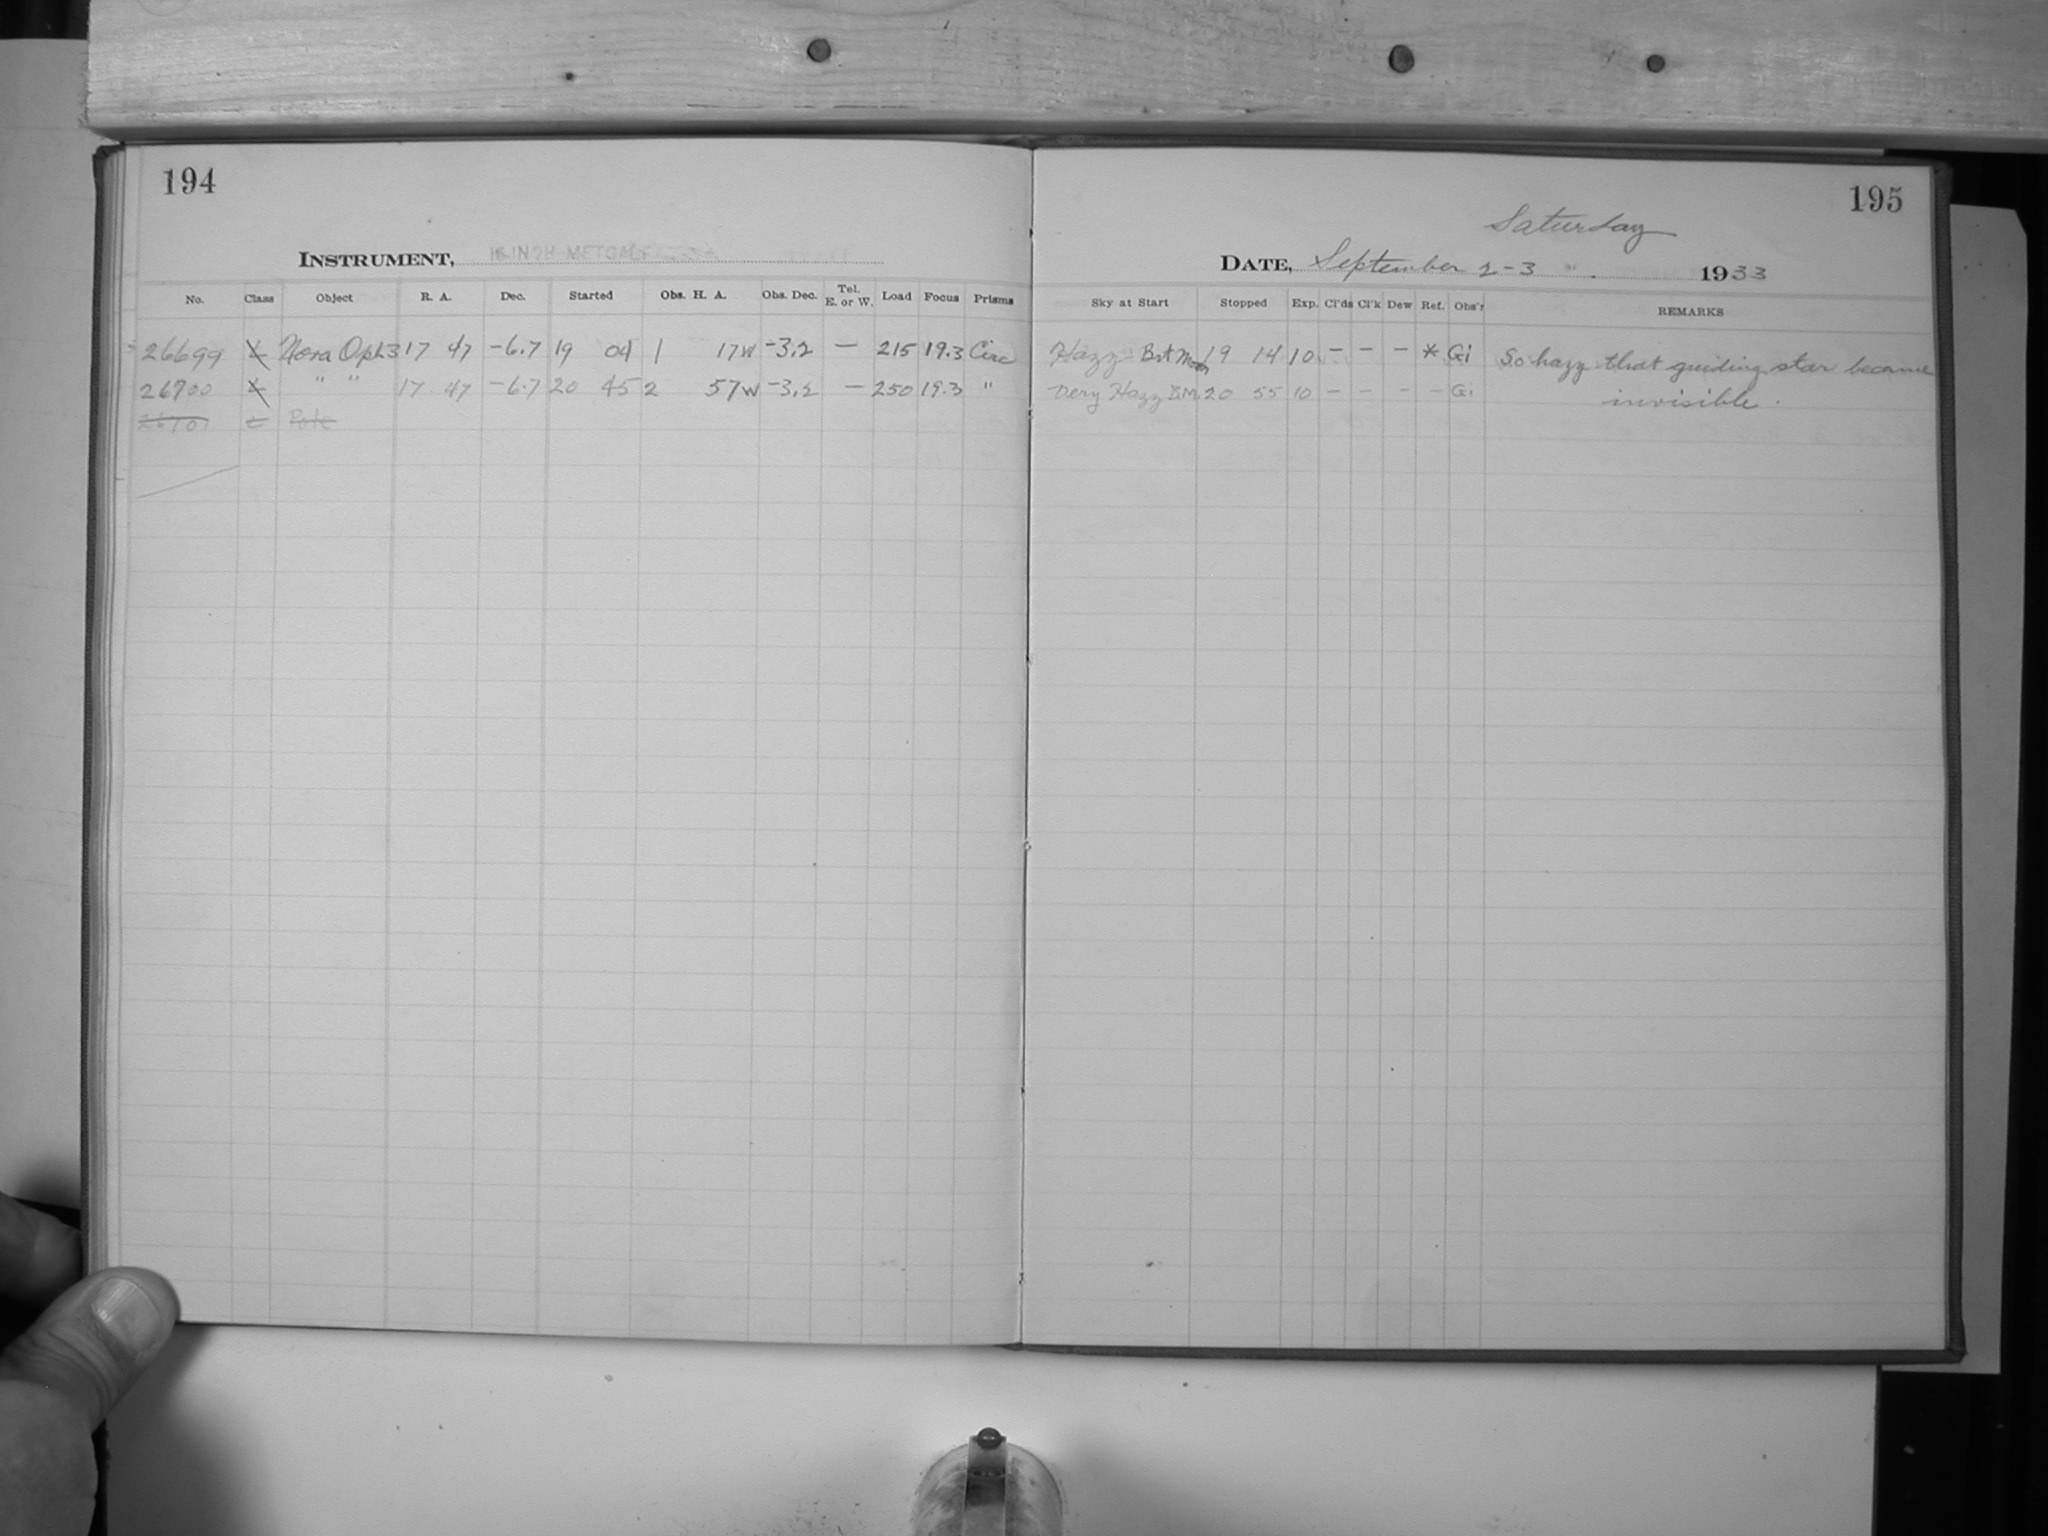 194
INSTRUMENT, INCH METCALF
No. Class Object R. A. Dec. Started Obs. H. A. Obs. Dec. Tel. E. or W. Load Focus Prisms
26699 Nova Oph3 17 47 -6.7 19 04 1 17W -3.2 — 215 19.3 Circ
26700 " " 17 47 -6.7 20 45 2 57W -3.2 — 250 19.3 "
26701 Pole
195
Saturday
DATE, September 2-3 1933
Sky at Start Stopped Exp. Cl'ds Cl'k Dew Ref. Obs'r REMARKS
Hazy Brt Moon 19 14 10 - - - * Gi So hazy that guiding star became
Very Hazy B.M. 20 55 10 - - - - Gi invisible.